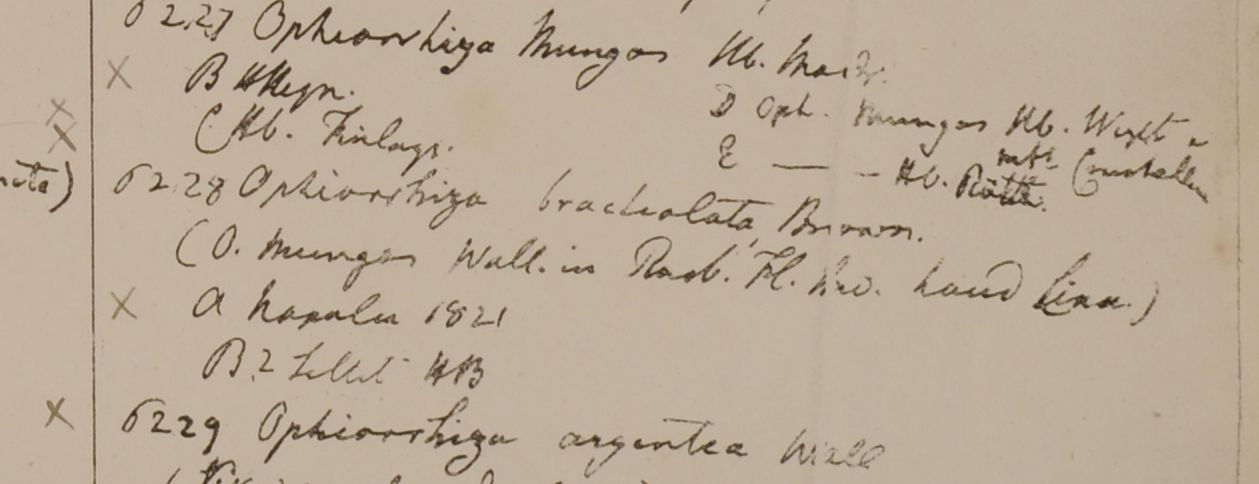 6227 Ophiorrhiza Mungos Hb. Madr.
B HHeyn.
C Hb. Finlays.
D Oph. Mungos Hb. Wight
E — - Hb. Rottl.
6228 Ophiorrhiza bracteolata Brown.
(O. Mungos Wall. in Roxb. Fl. Ind. haud Linn.)
A Napalia 1821
B? Sillet HB
6229 Ophiorrhiza argentea Wall